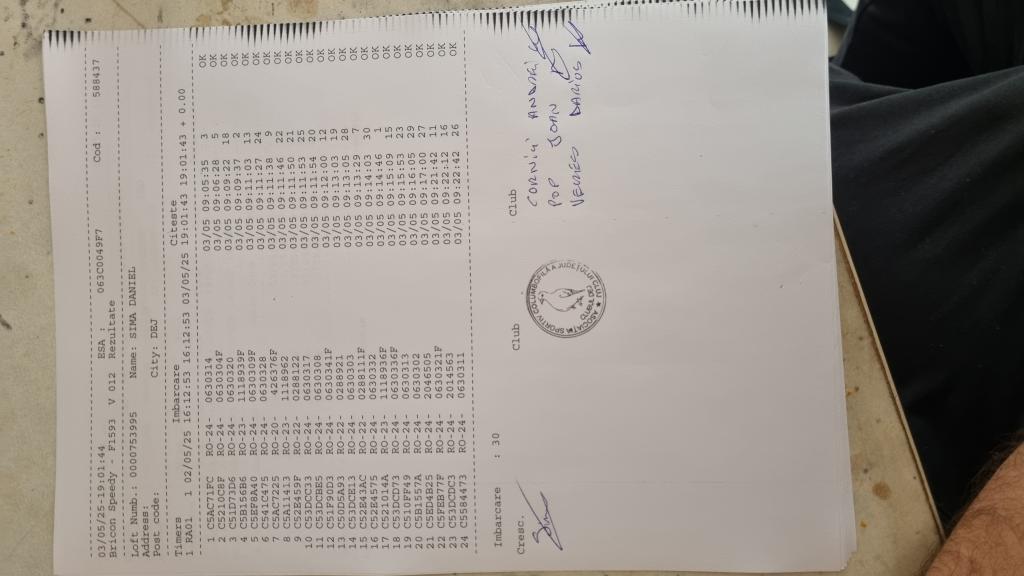 03/05/25-19:01:44 ESA : 063C0049F7 Cod : 588437
Bricon Speedy - F1593 V 012 Rezultate
Loft Numb.: 0000753995 Name: SIMA DANIEL
Address:
Post code: City: DEJ
Timers Imbarcare Citeste
1 RA01 1 02/05/25 16:12:53 16:12:53 03/05/25 19:01:43 19:01:43 + 0.00
1 C5AC71FC RO-24- 0630314 03/05 09:05:35 3 OK
2 C5210C8F RO-24- 0630304F 03/05 09:06:28 5 OK
3 C51D73D6 RO-24- 0630320 03/05 09:09:22 18 OK
4 C5B156B6 RO-23- 1118939F 03/05 09:09:37 2 OK
5 C5EF8AA0 RO-24- 0630309F 03/05 09:11:03 13 OK
6 C541C475 RO-24- 0630328 03/05 09:11:27 24 OK
7 C5AC7225 RO-20- 426376F 03/05 09:11:38 9 OK
8 C5A11413 RO-23- 1118962 03/05 09:11:46 22 OK
9 C52E459F RO-22- 0288122 03/05 09:11:50 21 OK
10 C53DCC33 RO-24- 0630317 03/05 09:11:53 25 OK
11 C53DCBE5 RO-24- 0630308 03/05 09:11:54 20 OK
12 C51F90D3 RO-24- 0630341F 03/05 09:12:00 12 OK
13 C50D5A93 RO-22- 0288921 03/05 09:13:03 19 OK
14 C53DCE13 RO-24- 0630303 03/05 09:13:05 28 OK
15 C52E43AC RO-22- 0288111F 03/05 09:13:29 7 OK
16 C52E4575 RO-24- 0630332 03/05 09:14:03 30 OK
17 C521014A RO-23- 1118936F 03/05 09:14:46 1 OK
18 C53DCD73 RO-24- 0630336F 03/05 09:15:09 15 OK
19 C510FF49 RO-24- 0630313 03/05 09:15:53 23 OK
20 C5B1557A RO-24- 0630302 03/05 09:16:05 29 OK
21 C5ED4B25 RO-24- 2046505 03/05 09:17:00 27 OK
22 C5FEB77F RO-24- 0630321F 03/05 09:21:42 11 OK
23 C53DCDC3 RO-24- 2014563 03/05 09:22:12 16 OK
24 C5584473 RO-24- 0630311 03/05 09:22:42 26 OK
Imbarcare : 30
Cresc. Club Club
POP IOAN
DARIUS